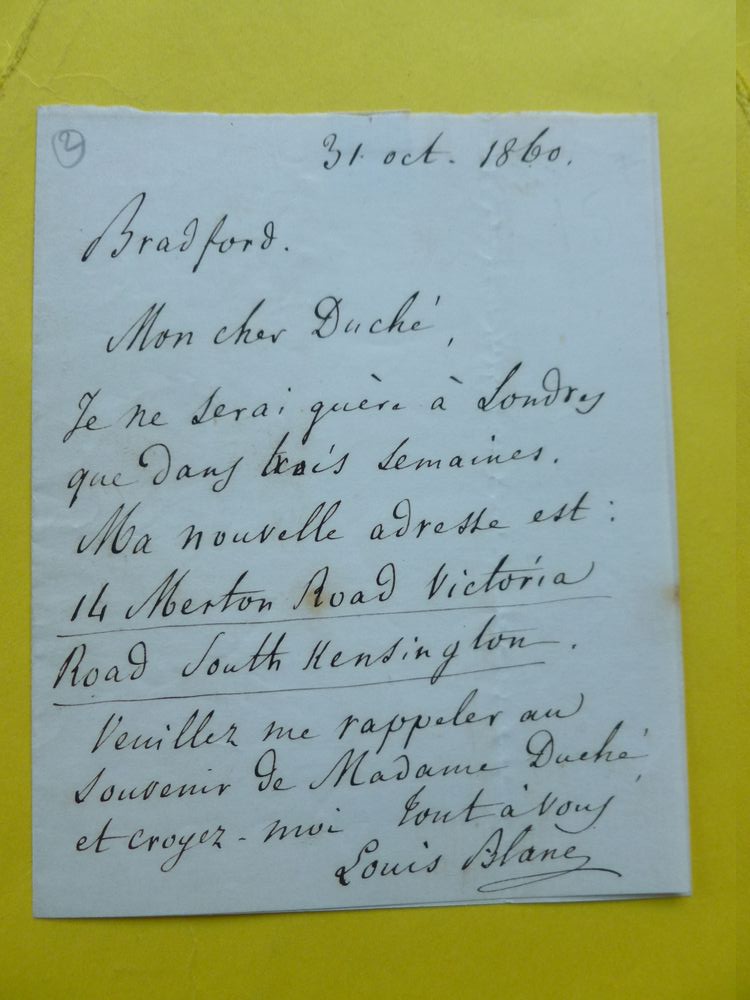 2
31 oct. 1860.
Bradford.
Mon cher Duché,
Je ne serai guère à Londres
que dans trois semaines.
Ma nouvelle adresse est :
14 Merton Road Victoria
Road South Kensington.
Veuillez me rappeler au
souvenir de Madame Duché
et croyez-moi tout à vous
Louis Blanc